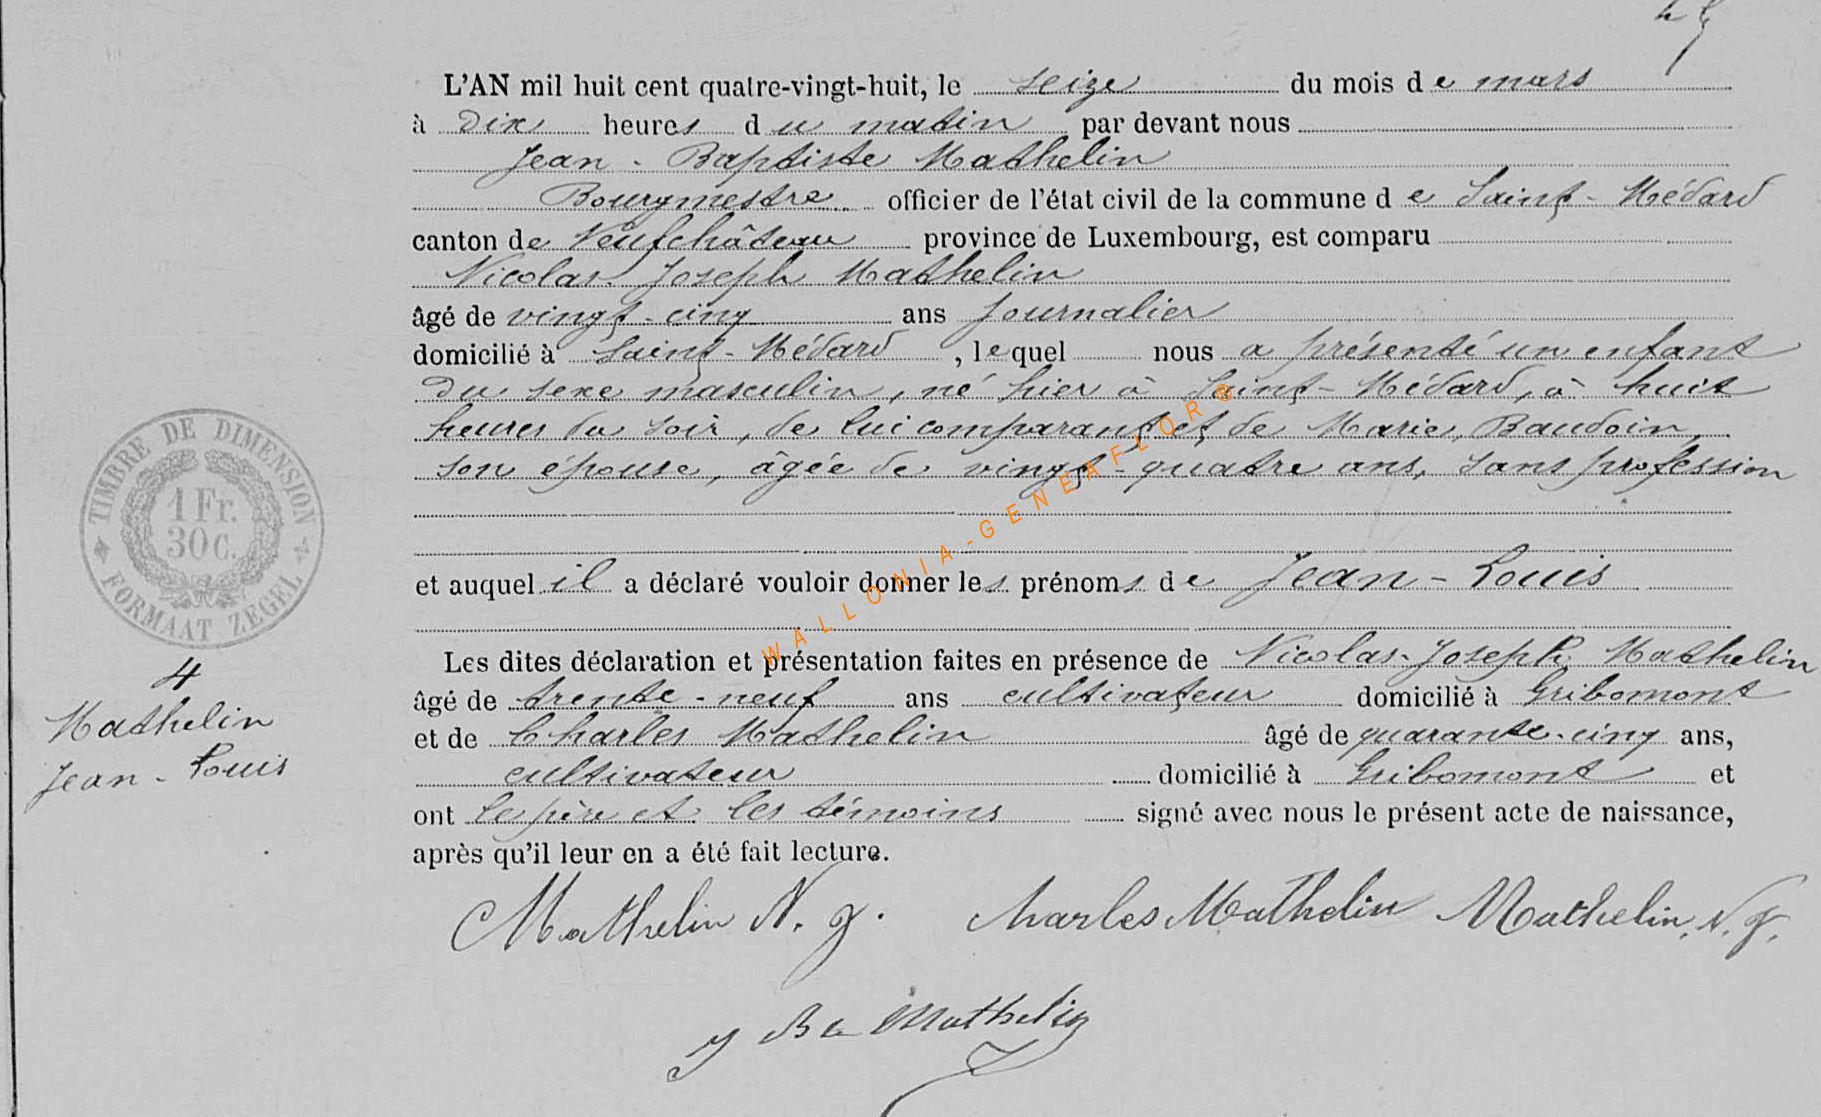 L'AN mil huit cent quatre-vingt-huit, le seize du mois de mars
à dix heures du matin par devant nous
Jean-Baptiste Mathelin
Bourgmestre officier de l'état civil de la commune de Saint-Médard
canton de Neufchâteau province de Luxembourg, est comparu
Nicolas-Joseph Mathelin
âgé de vingt-cinq ans Journalier
domicilié à Saint-Médard, lequel nous a présenté un enfant
du sexe masculin, né hier à Saint-Médard, à huit
heures du soir, de lui comparant et de Marie, Baudoin,
son épouse, âgée de vingt-quatre ans, sans profession
et auquel il a déclaré vouloir donner les prénoms de Jean-Louis
Les dites déclaration et présentation faites en présence de Nicolas-Joseph Mathelin
âgé de trente-neuf ans cultivateur domicilié à Gribomont
et de Charles Mathelin âgé de quarante-cinq ans,
cultivateur domicilié à Gribomont et
ont le père et les témoins signé avec nous le présent acte de naissance,
après qu'il leur en a été fait lecture.
Mathelin N. J. Charles Mathelin Mathelin, N. J.
J Bte Mathelin
TIMBRE DE DIMENSION
1 Fr.
30 C.
FORMAAT ZEGEL
4
Mathelin
Jean-Louis
WALLONIA-GENEAFLOR®